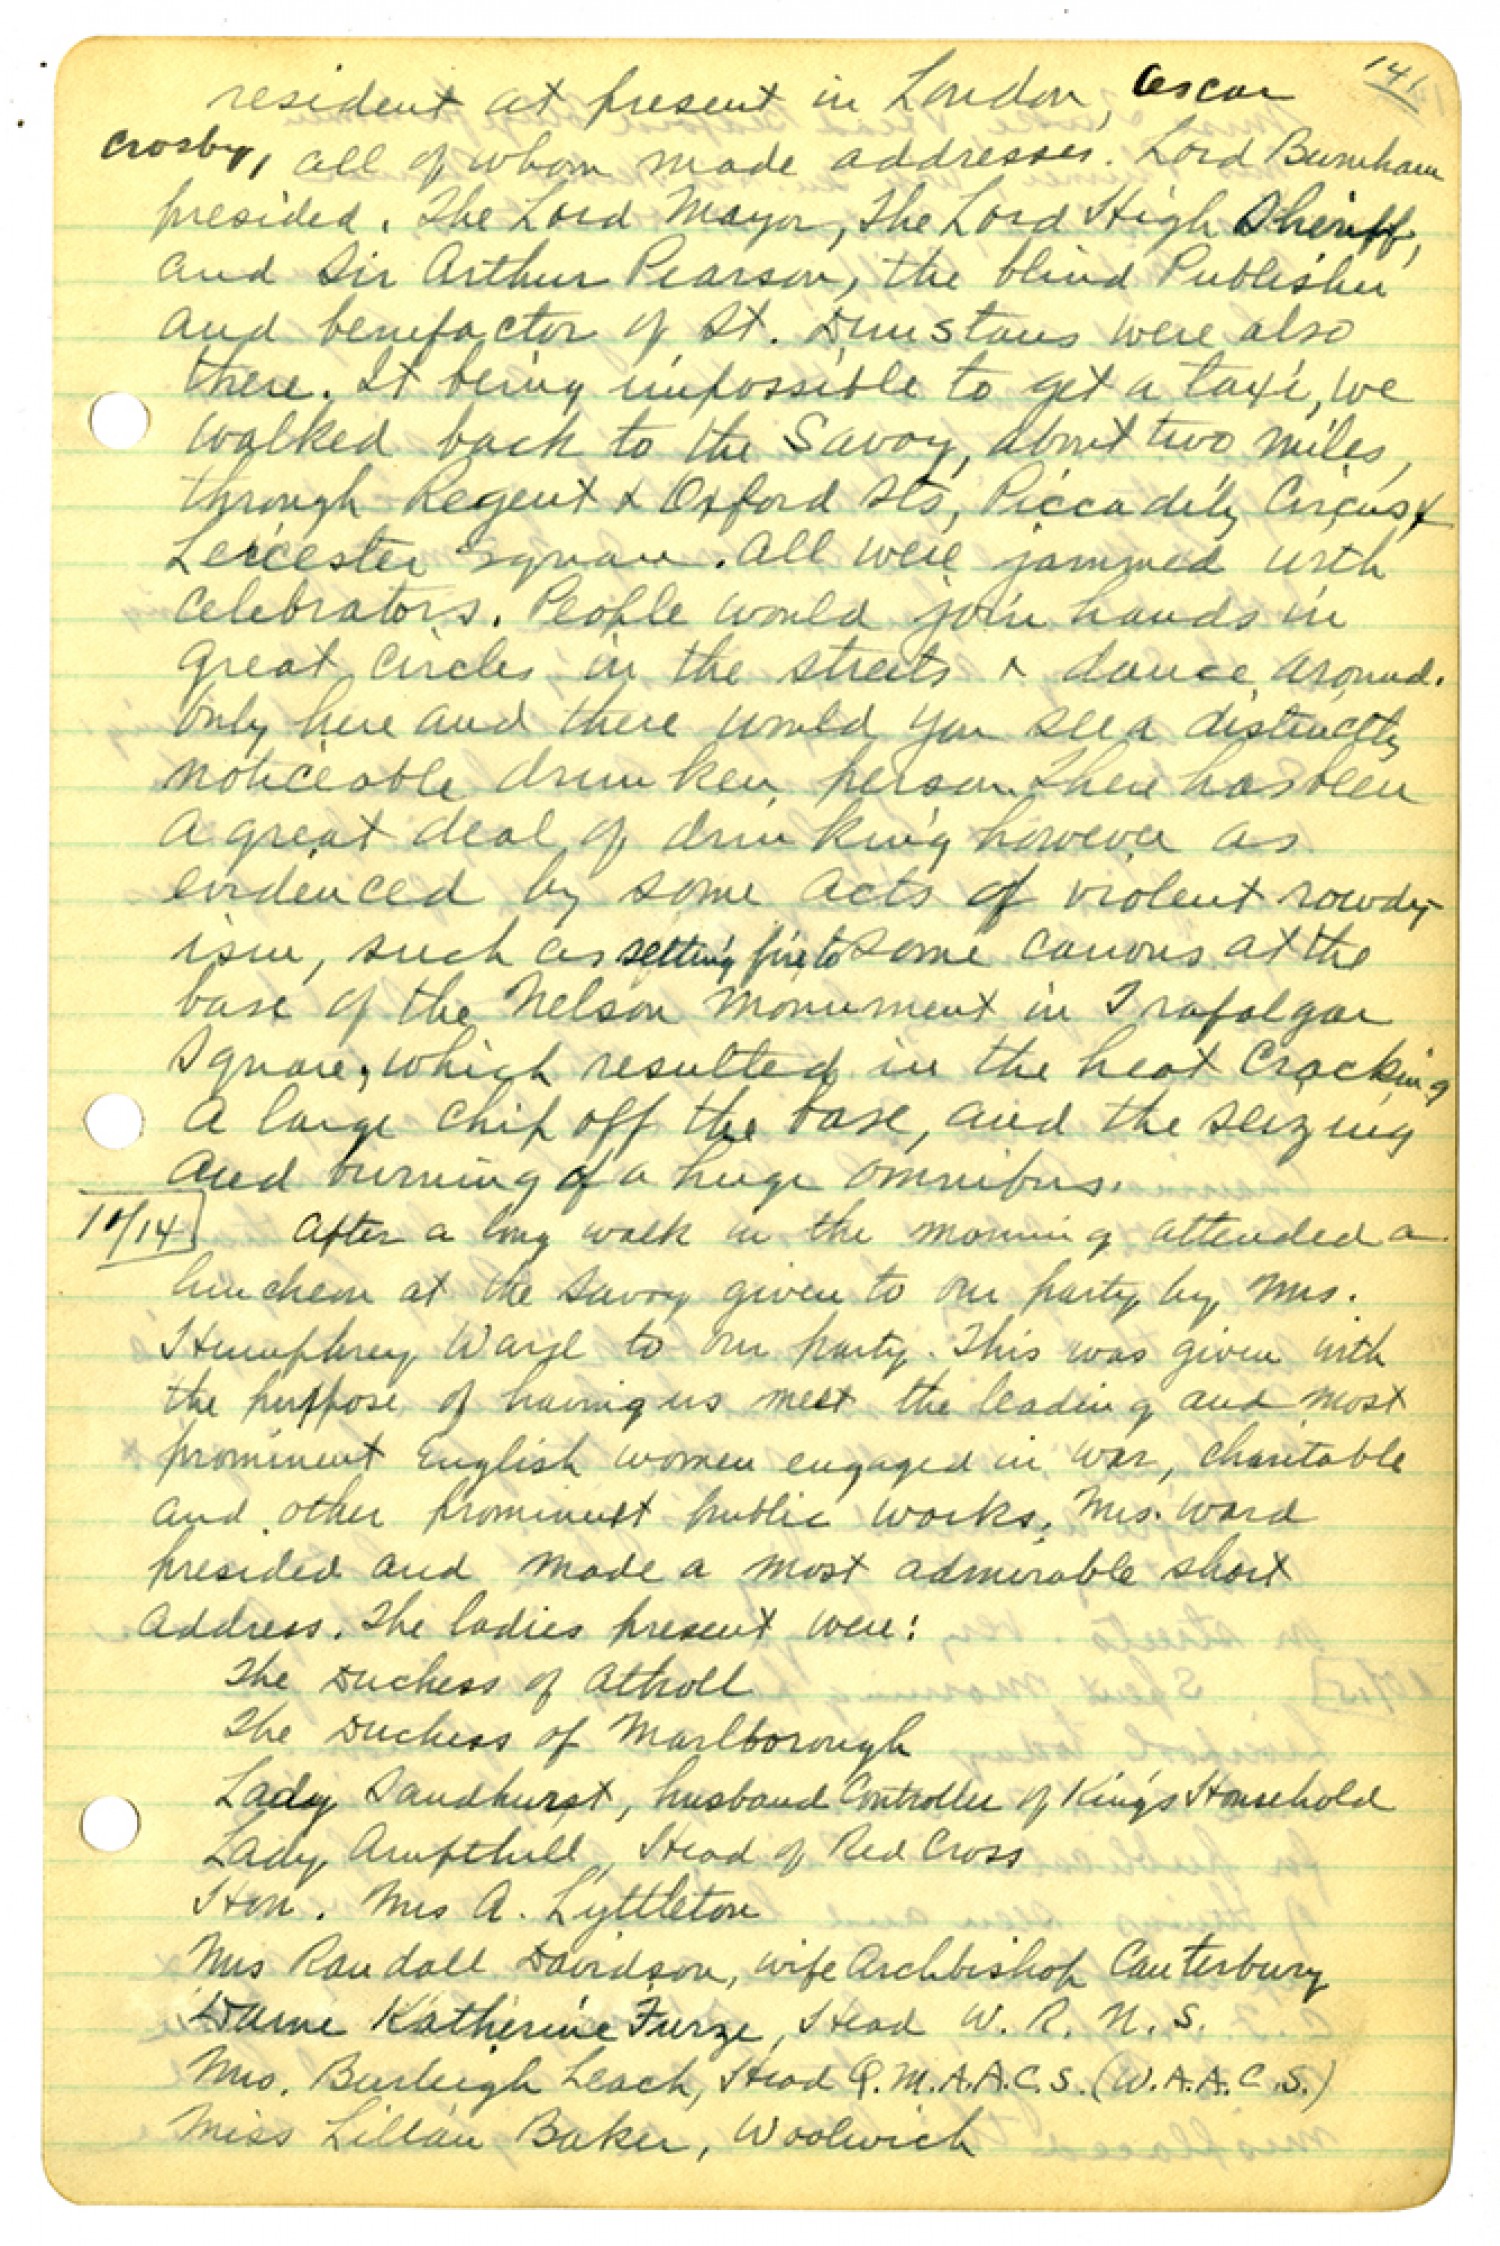 141
resident at present in London, Oscar
Crosby, all of whom made addresses. Lord Burnham
presided. The Lord Mayor, The Lord High Sheriff,
and Sir Arthur Pearson, the blind Publisher
and benefactor of St. Dunstans were also
there. It being impossible to get a taxi, we
walked back to the Savoy, about two miles,
through Regent & Oxford Sts, Piccadily Circus &
Leicester Square. All were jammed with
celebrators. People would join hands in
great circles in the streets & dance around.
Only here and there would you see a distinctly
noticeable drunken person. There has been
a great deal of drinking however as
evidenced by some acts of violent rowdy-
ism, such as setting fire to some canons at the
base of the Nelson Monument in Trafalgar
Square, which resulted in the heat cracking
a large chip off the base, and the seizing
and burning of a huge omnibus.
11/14 After a long walk in the morning attended a
luncheon at the Savoy given to our party by Mrs.
Humphrey Ward to our party. This was given with
the purpose of having us meet the leading and most
prominent English women engaged in war, charitable
and other prominent public works. Mrs. Ward
presided and made a most admirable short
address. The ladies present were:
The Duchess of Atholl
The Duchess of Marlborough
Lady Sandhurst, husband Controller of King's Household
Lady Ampthill, Head of Red Cross
Hon. Mrs A. Lyttleton
Mrs Randall Davidson, wife Archbishop Canterbury
Dame Katherine Furze, Head W. R. N. S.
Mrs. Burleigh Leach, Head Q.M.A.A.C.S. (W.A.A.C.S.)
Miss Lillian Baker, Woolwich